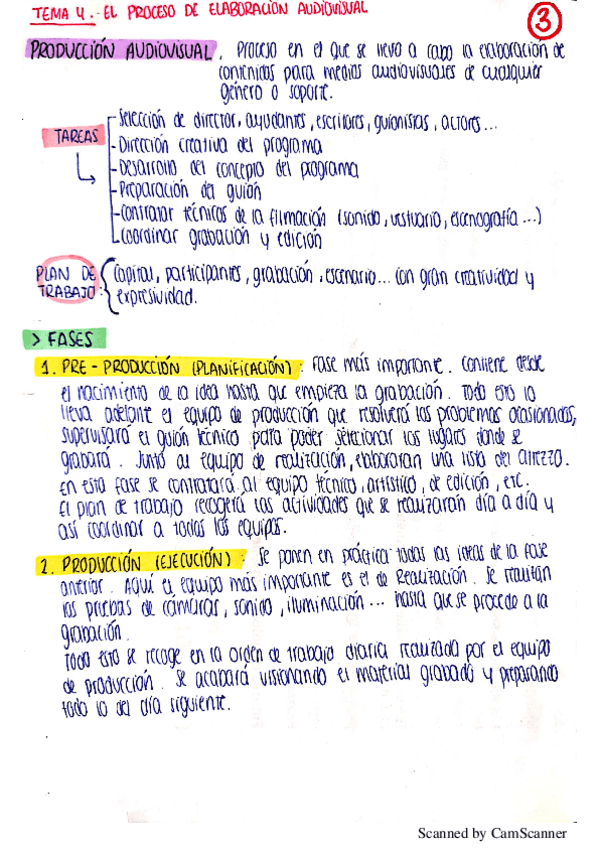 TEMA 4.- EL PROCESO DE ELABORACIÓN AUDIOVISUAL
3
PRODUCCIÓN AUDIOVISUAL. Proceso en el que se lleva a cabo la elaboración de
contenidos para medios audiovisuales de cualquier
género o soporte.
TAREAS
-Selección de director, ayudantes, escritores, guionistas, actores...
-Dirección creativa del programa
-Desarrollo del concepto del programa
-Preparación del guión
-Contratar técnicos de la filmación (sonido, vestuario, escenografía...)
-Coordinar grabación y edición
PLAN DE TRABAJO: {Capital, participantes, grabación, escenario... con gran creatividad y
expresividad.
> FASES
1. PRE-PRODUCCIÓN (PLANIFICACIÓN): Fase más importante. Contiene desde
el nacimiento de la idea hasta que empieza la grabación. Todo esto lo
lleva adelante el equipo de producción que resolverá los problemas ocasionados,
supervisará el guión técnico para poder seleccionar los lugares donde se
grabará. Junto al equipo de realización, elaboraran una lista del atrezzo.
En esta fase se contratará al equipo técnico, artístico, de edición, etc.
El plan de trabajo recogerá las actividades que se realizarán día a día y
así coordinar a todos los equipos.
2. PRODUCCIÓN (EJECUCIÓN): Se ponen en práctica todas las ideas de la fase
anterior. Aquí el equipo más importante es el de Realización. Se realizan
las pruebas de cámaras, sonido, iluminación... hasta que se procede a la
grabación.
Todo esto se recoge en la orden de trabajo diaria realizada por el equipo
de producción. Se acabará visionando el material grabado y preparando
todo lo del día siguiente.
Scanned by CamScanner